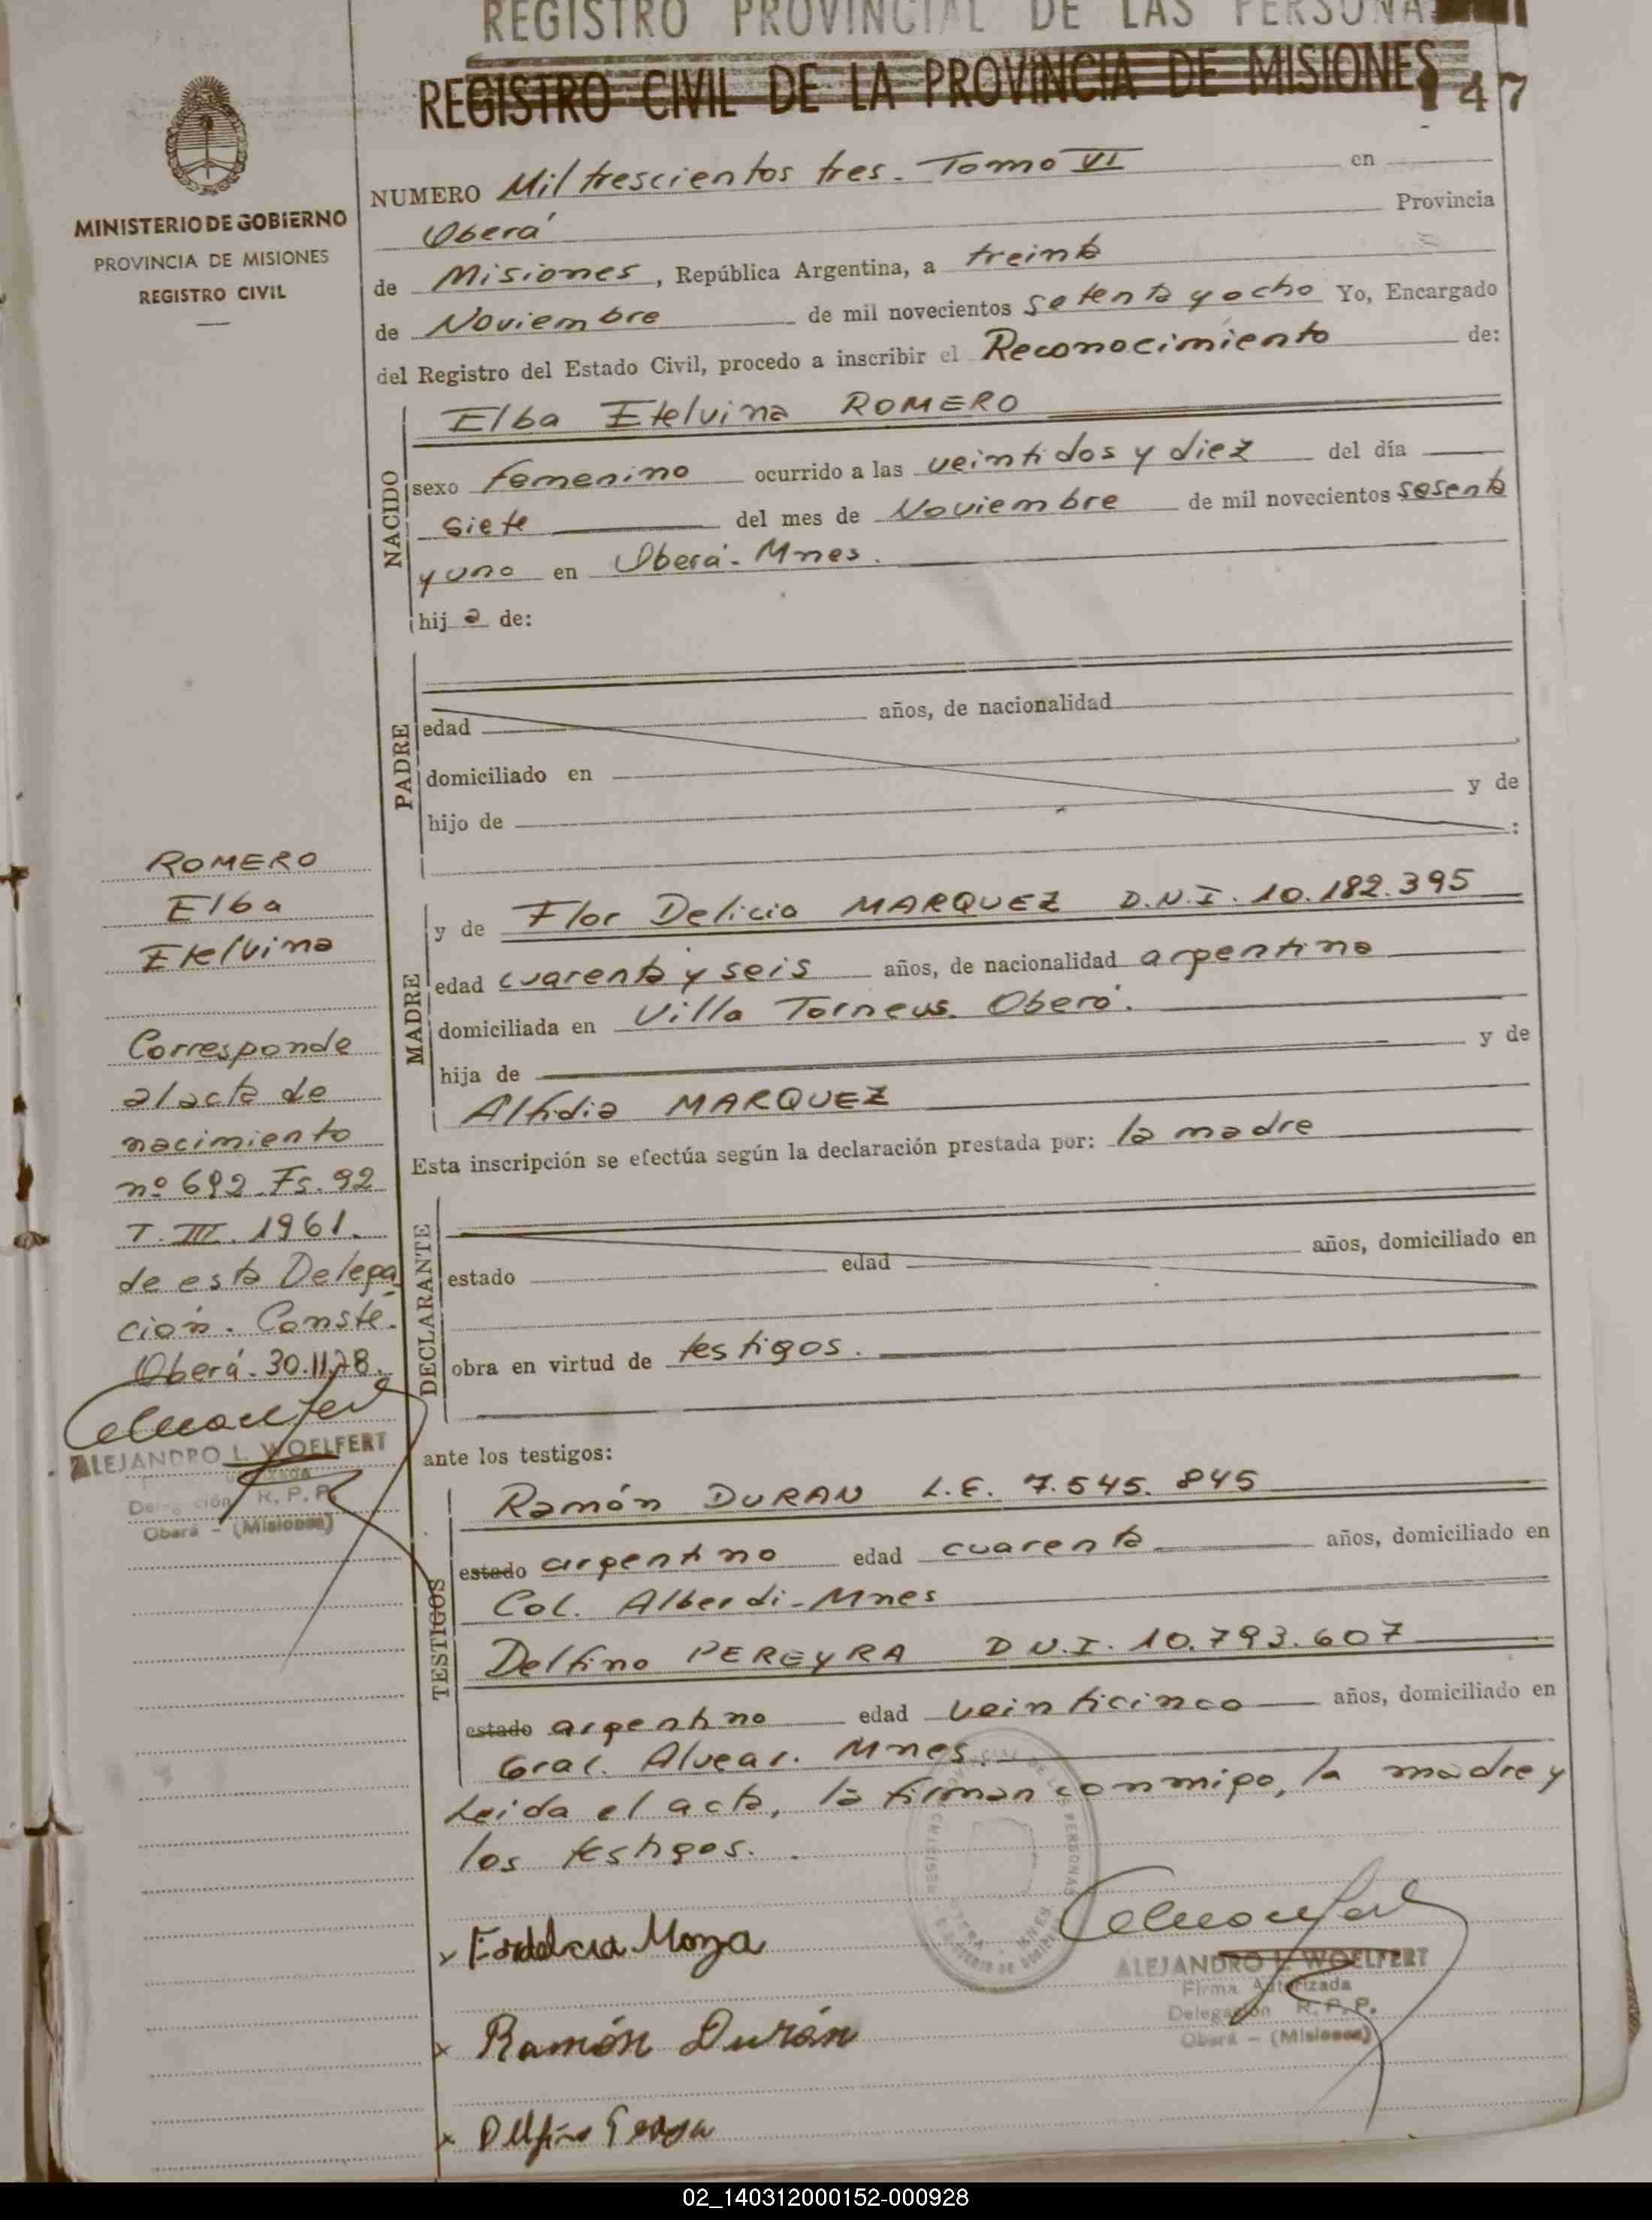 REGISTRO PROVINCIAL DE LAS PERSONA
REGISTRO CIVIL DE LA PROVINCIA DE MISIONES
47
MINISTERIO DE GOBIERNO
PROVINCIA DE MISIONES
REGISTRO CIVIL
NUMERO Mil trescientos tres. Tomo VI en
Oberá Provincia
de Misiones, República Argentina, a treinta
de Noviembre de mil novecientos setenta y ocho Yo, Encargado
del Registro del Estado Civil, procedo a inscribir el Reconocimiento de:
NACIDO
Elba Etelvina ROMERO
sexo femenino ocurrido a las veintidos y diez del día
siete del mes de Noviembre de mil novecientos sesenta
y uno en Oberá - Mnes.
hija de:
PADRE
edad años, de nacionalidad
domiciliado en
hijo de y de
:
MADRE
y de Flor Delicia MARQUEZ D.N.I. 10.182.395
edad cuarenta y seis años, de nacionalidad argentina
domiciliada en Villa Torneus. Oberá.
hija de y de
Alfidia MARQUEZ
Esta inscripción se efectúa según la declaración prestada por: la madre
DECLARANTE
estado edad años, domiciliado en
obra en virtud de testigos.
ante los testigos:
TESTIGOS
Ramón DURAN L.E. 7.545.845
estado argentino edad cuarenta años, domiciliado en
Col. Alberdi - Mnes
Delfino PEREYRA D.N.I. 10.793.607
estado argentino edad veinticinco años, domiciliado en
Gral. Alvear. Mnes.
Leida el acta, la firman conmigo, la madre y
los testigos.
ROMERO
Elba
Etelvina
Corresponde
al acta de
nacimiento
nº 692 Fs. 92
T. III. 1961.
de esta Delega
ción. Conste.
Oberá. 30.11.78.
ALEJANDRO L. WOELFERT
Delegación R. P. P.
Oberá - (Misiones)
x Moya
x Ramón Durán
x Delfino
ALEJANDRO L. WOELFERT
Firma Autorizada
Delegación R. P. P.
Oberá - (Misiones)
02_140312000152-000928